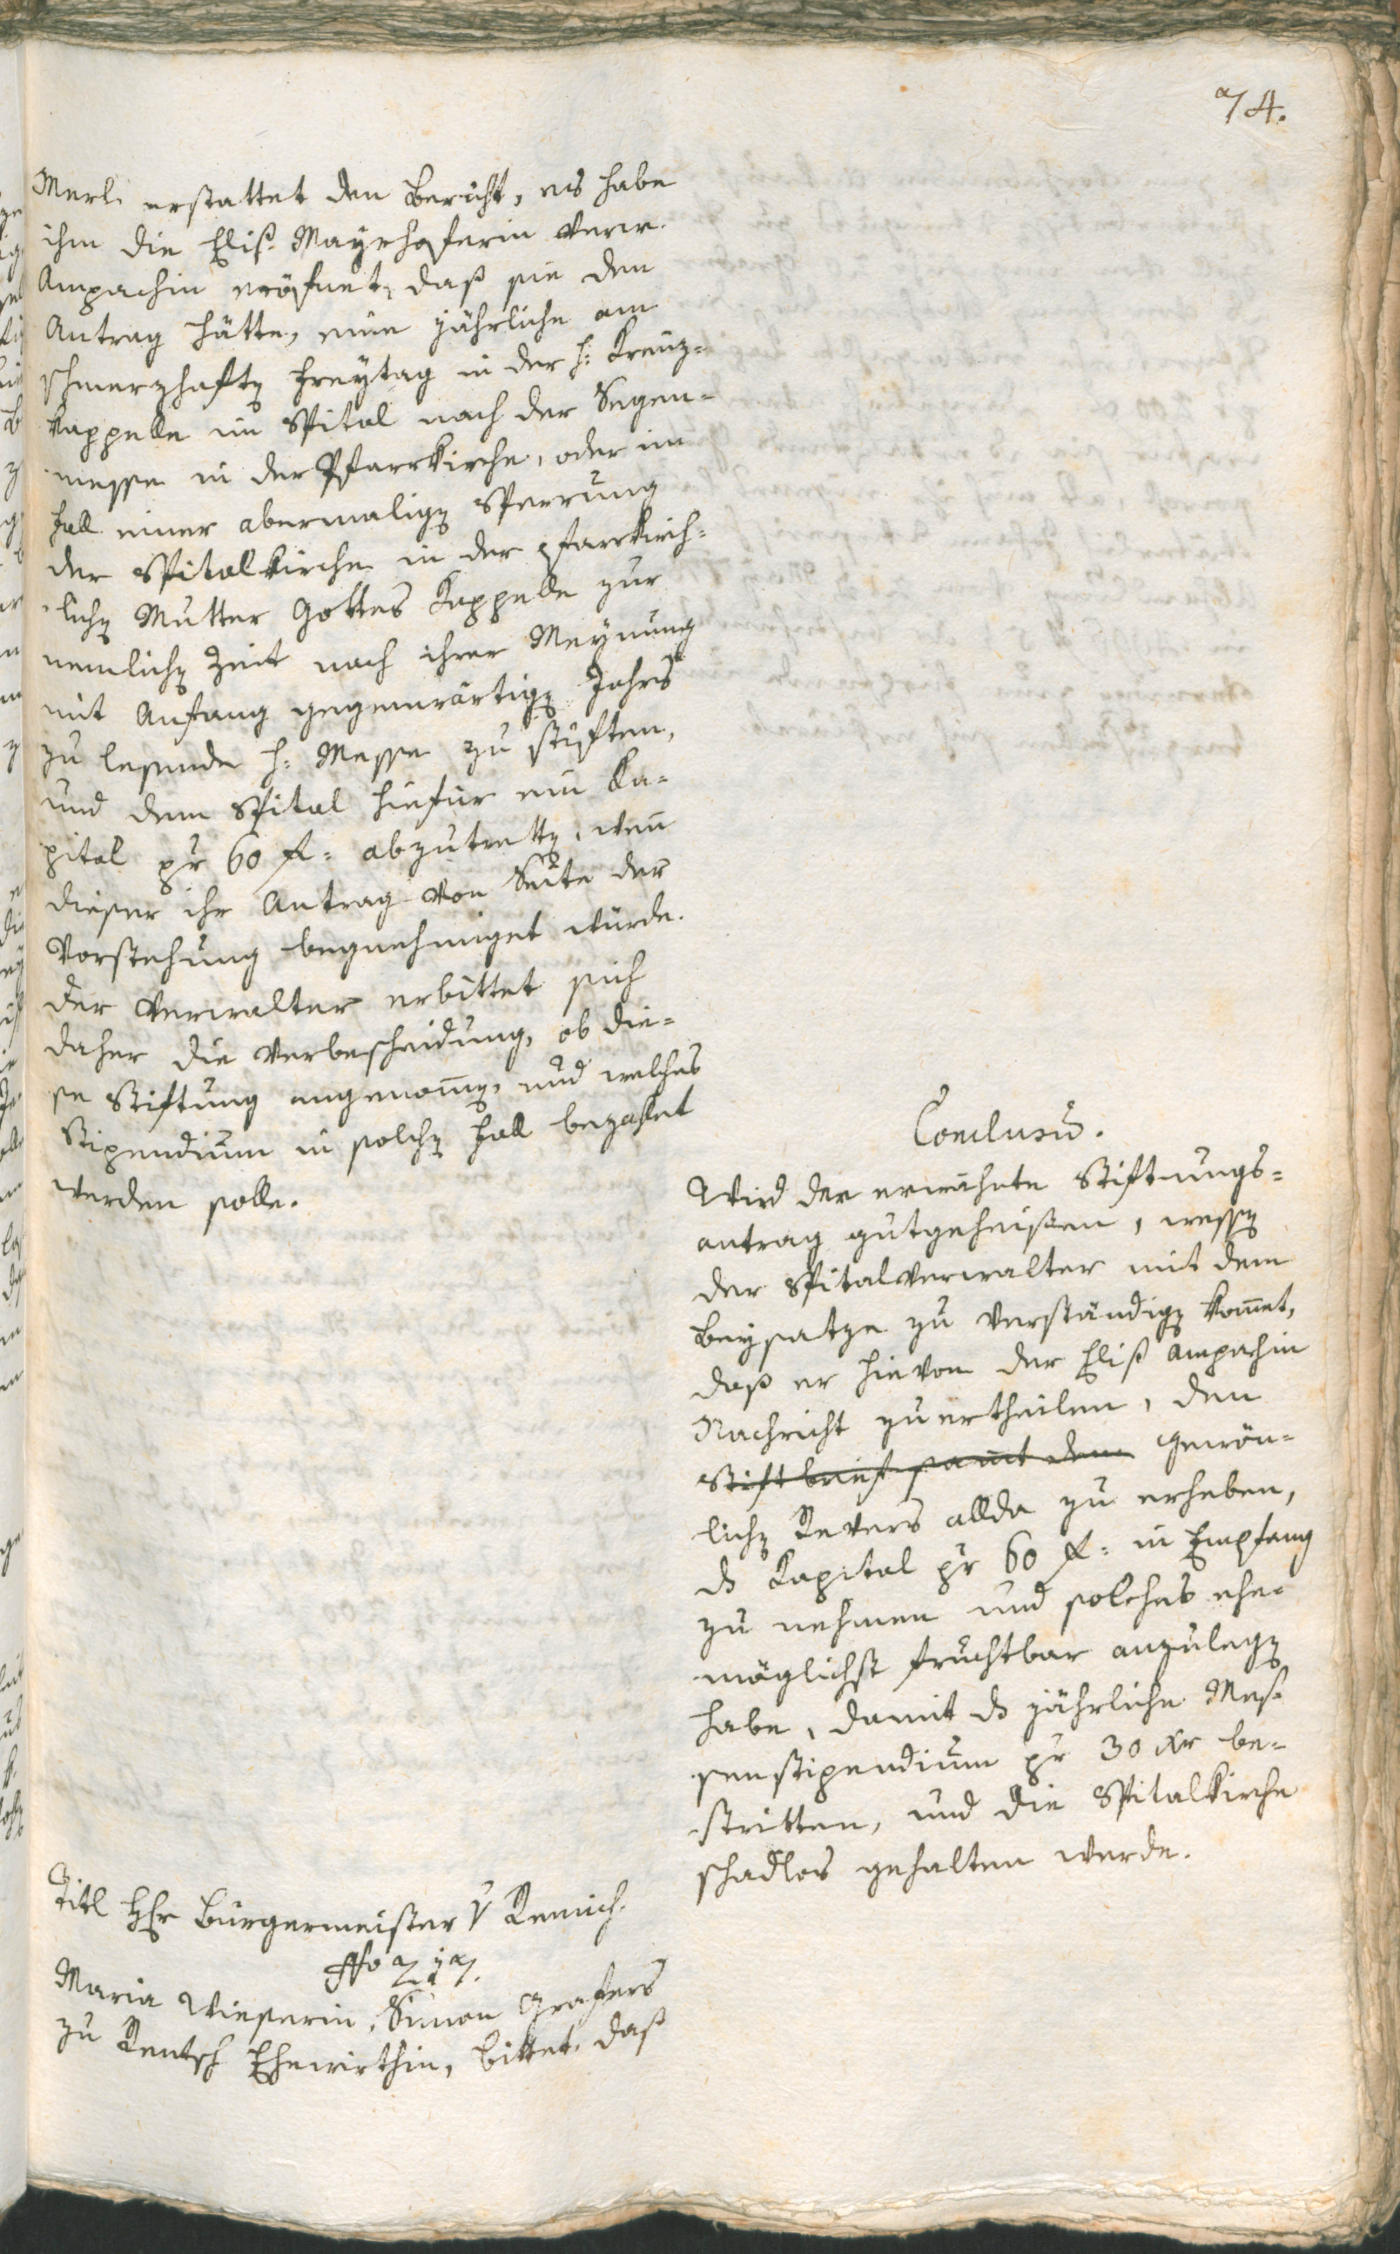 74.
Merl. erstattet den Bericht, es habe
ihm die Elis. Mayrhoferin verw.
Ampachin eröfnet, daß sie den
Antrag hätte, eine jährliche am
schmerzhaften Freytag in der H: Kreuz-
kappelle im Spital nach der Segen-
messe in der Pfarrkirche, oder im
Fall einer abermaligen Sperrung
der Spitalkirche in der pfarrkirch-
lichen Mutter Gottes Kappelle zur
nemlichen Zeit nach ihrer Meynung
mit Anfang gegenwärtigen Jahrs
zu lesende H: Messe zu stiften,
und dem Spital hiefür ein Ka-
pital pr 60 f: abzutretten, wenn
dieser ihr Antrag von Seite der
Vorstehung begnehmiget würde.
Der Verwalter erbittet sich
daher die Verbescheidung, ob die-
se Stiftung angenommen, und welches
Stipendium in solchen Fall bezahlet
werden solle.
Conclusum.
Wird der erwähnte Stiftungs-
antrag gutgeheissen, wessen
der Spitalverwalter mit dem
Beysatze zu verständigen kommet,
daß er hievon der Elis Ampachin
Nachricht zu ertheilen, den
Stiftbrief sammt dem gewön-
lichen Revers allda zu erheben,
das Kapital pr 60 f: in Empfang
zu nehmen und solches ehe-
möglichst fruchtbar anzulegen
habe, damit das jährliche Mes-
senstipendium pr 30 xr be-
stritten, und die Spitalkirche
schadlos gehalten werde.
Titl HHr Bürgermeister v Remich.
Maria Wieserin, Simon Grafers
zu Rentsch Ehewirthin, bittet, daß